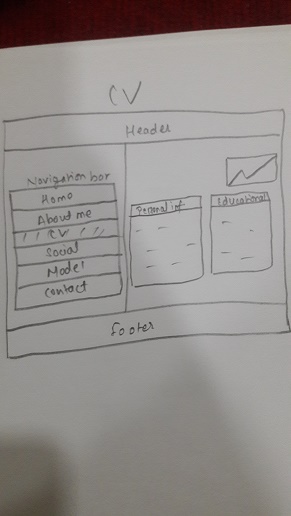 CV
Header
Navigation bar
Home
About me
CV
Social
Model
Contact
Personal inf
Educational
footer